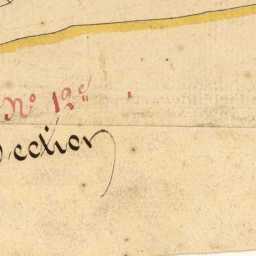 N° 12e
Section